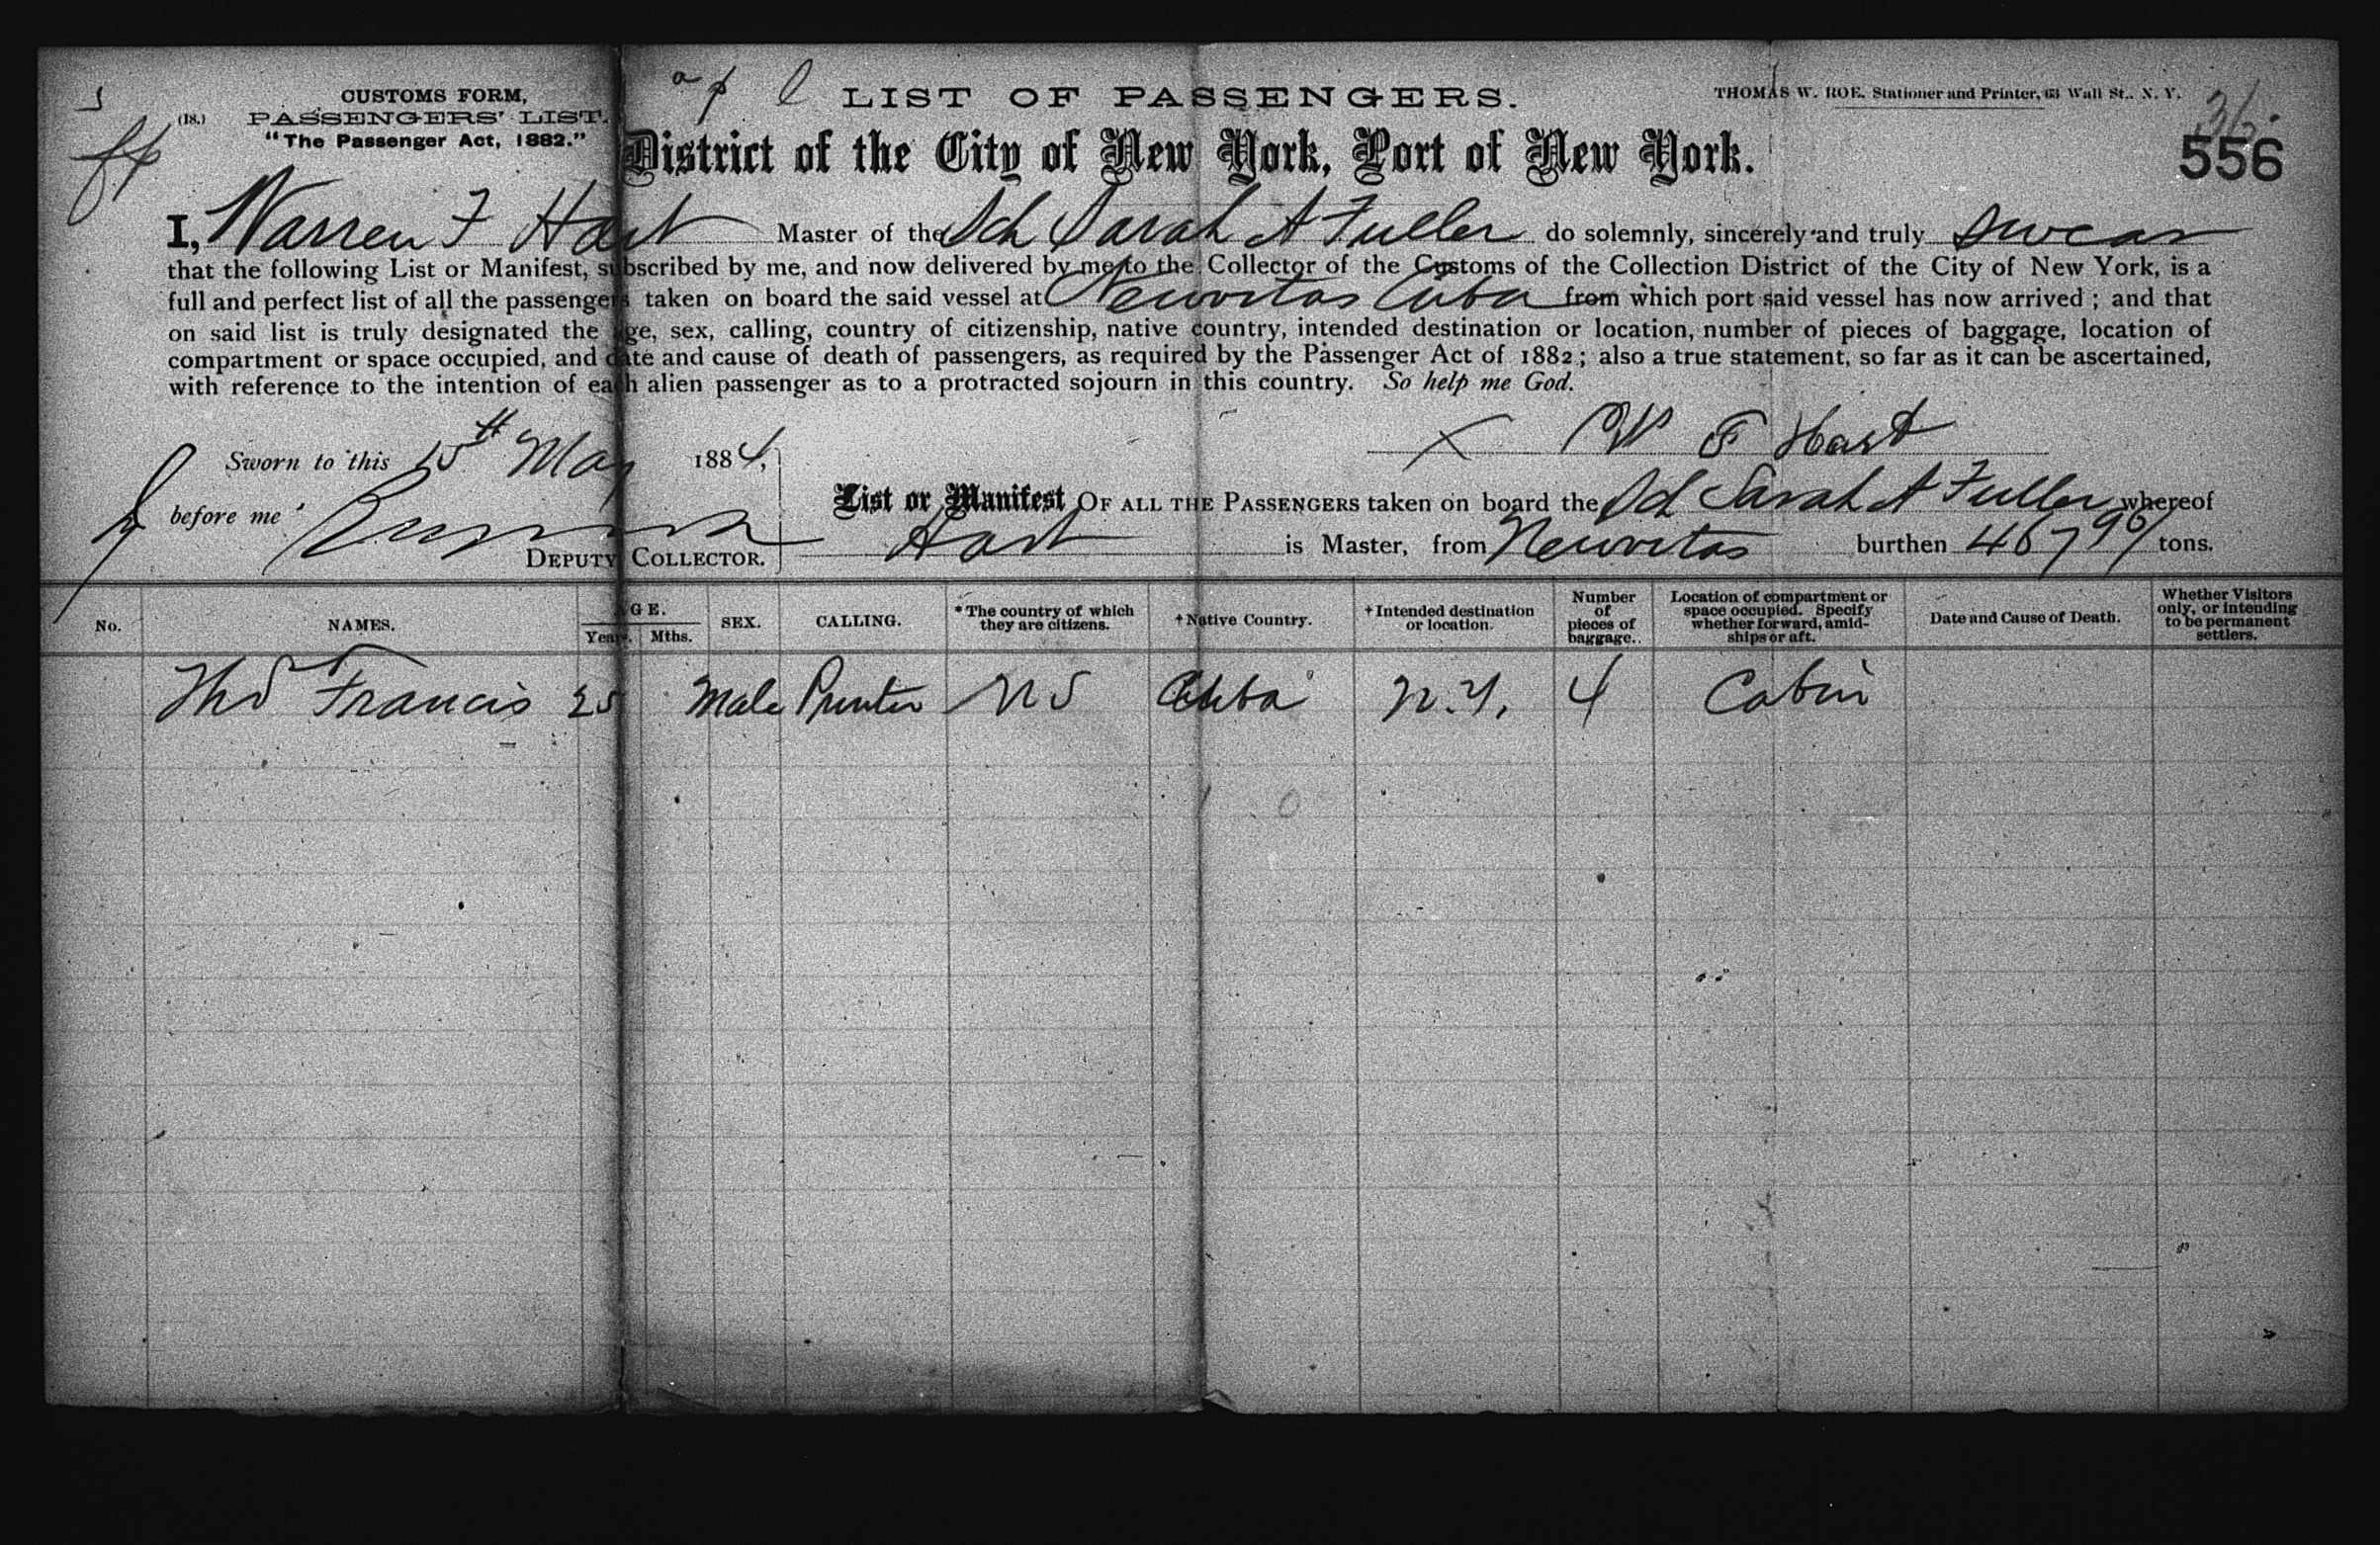 CUSTOMS FORM,
(18.) PASSENGERS' LIST.
"The Passenger Act, 1882."
LIST OF PASSENGERS.
THOMAS W. ROE. Stationer and Printer, 63 Wall St., N. Y.
36.
556
District of the City of New York, Port of New York.
I, Warren F Hart Master of the Sch Sarah A Fuller do solemnly, sincerely and truly swear
that the following List or Manifest, subscribed by me, and now delivered by me to the Collector of the Customs of the Collection District of the City of New York, is a
full and perfect list of all the passengers taken on board the said vessel at Neuvitas Cuba from which port said vessel has now arrived; and that
on said list is truly designated the age, sex, calling, country of citizenship, native country, intended destination or location, number of pieces of baggage, location of
compartment or space occupied, and date and cause of death of passengers, as required by the Passenger Act of 1882; also a true statement, so far as it can be ascertained,
with reference to the intention of each alien passenger as to a protracted sojourn in this country. So help me God.
X W F Hart
Sworn to this 15th May 1884,
before me
DEPUTY COLLECTOR.
List or Manifest OF ALL THE PASSENGERS taken on board the Sch Sarah A Fuller whereof
Hart is Master, from Neuvitas burthen 467 96/ tons.
No. NAMES. AGE. Years. Mths. SEX. CALLING. *The country of which they are citizens. †Native Country. †Intended destination or location. Number of pieces of baggage. Location of compartment or space occupied. Specify whether forward, amidships or aft. Date and Cause of Death. Whether Visitors only, or intending to be permanent settlers.
Thos Francis 25 Male Printer Cuba N.Y. 4 Cabin